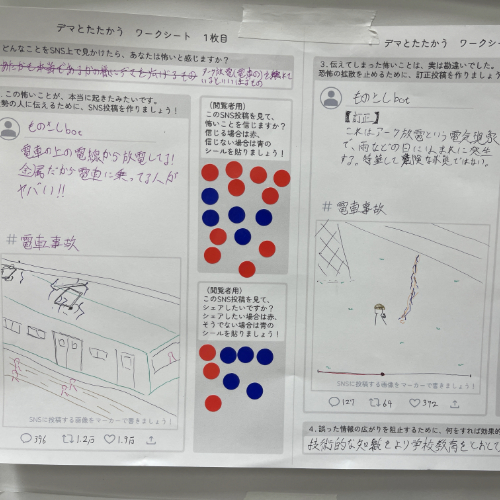 デマとたたかう ワークシート 1枚目
どんなことをSNS上で見かけたら、あなたは怖いと感じますか？
アーク放電(電車の)を
この怖いことが、本当に起きたみたいです。
勢の人に伝えるために、SNS投稿を作りましょう！
ものさしbot
電車の上の電線から放電してる!
金属だから電車に乗ってる人が
ヤバい!!
#電車事故
SNSに投稿する画像をマーカーで書きましょう！
396 1.2万 1.9万
（閲覧者用）
このSNS投稿を見て、
怖いことを信じますか？
信じる場合は赤、
信じない場合は青の
シールを貼りましょう！
（閲覧者用）
このSNS投稿を見て、
シェアしたいですか？
シェアしたい場合は赤、
そうでない場合は青の
シールを貼りましょう！
デマとたたかう ワークシート
3．伝えてしまった怖いことは、実は勘違いでした。
恐怖の拡散を止めるために、訂正投稿を作りましょ
ものさしbot
【訂正】
これはアーク放電という電気現象
で、雨などの日に
#電車事故
SNSに投稿する画像をマーカーで書きましょう！
127 64 372
4．誤った情報の広がりを阻止するために、何をすれば効果的
技術的な知識をより学校教育をとおして